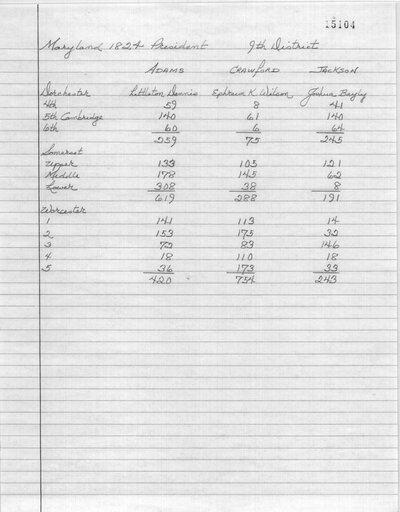 15104
Maryland 1824 President 9th District
ADAMS CRAWFORD JACKSON
Dorchester Littleton Dennis Ephraim K. Wilson Joshua Bayly
4th 59 8 41
5th Cambridge 140 61 140
6th 60 6 64
259 75 245
Somerset
Upper 133 105 121
Middle 178 145 62
Lower 308 38 8
619 288 191
Worcester
1 141 113 14
2 153 175 32
3 72 83 146
4 18 110 18
5 36 173 33
420 754 243